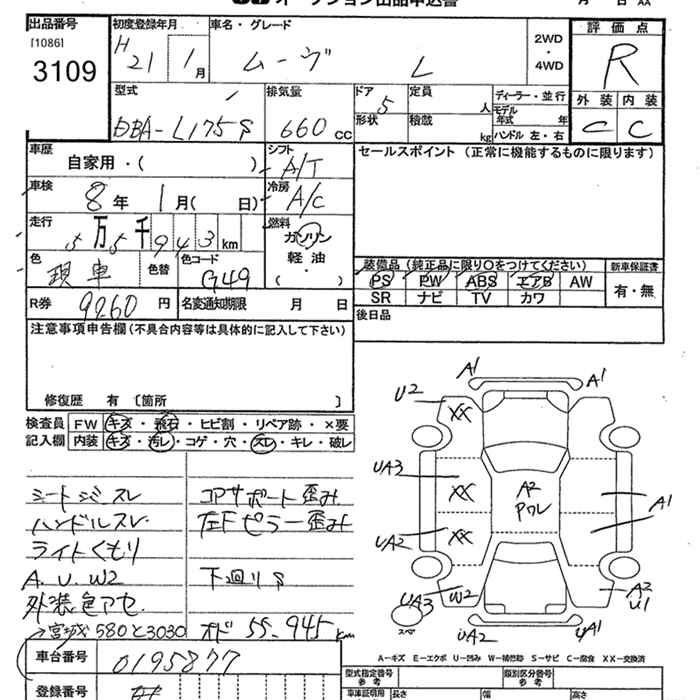 オークション出品申込書
月 日
出品番号 初度登録年月 車名・グレード 評価点
[1086] H 21年 1月 ムーヴ L 2WD・4WD R
3109
型式 排気量 ドア 定員 ディーラー・並行 外装 内装
DBA-L175S 660cc 5 人 モデル年式 年 C C
形状 積載 kg ハンドル 左・右
車歴 自家用・( ) シフト A/T セールスポイント(正常に機能するものに限ります)
車検 8年 1月( 日) 冷房 A/C
走行 5万5千943km 燃料 ガソリン 軽油 ( )
色 現車 色替 色コード G49
装備品(純正品に限り○をつけてください) 新車保証書
PS PW ABS エアB AW 有・無
SR ナビ TV カワ
R券 9260円 名変通知期限 月 日 後日品
注意事項申告欄(不具合内容等は具体的に記入して下さい)
修復歴 有〔箇所 〕
検査員記入欄 FW キズ・飛石・ヒビ割・リペア跡・×要
内装 キズ・汚レ・コゲ・穴・スレ・キレ・破レ
シートシミスレ コアサポート歪み
ハンドルスレ 左Fピラー歪み
ライトくもり
A.U.W2 下廻りS
外装色アセ
→宮城580と3030 オド 55,945km
A1 A1
U2 XX
UA3 XX A2 Pワレ A1
UA2 XX
UA3 W2 A2 U1
スペア UA2 UA1
A-キズ E-エクボ U-凹み W-補修跡 S-サビ C-腐食 XX-交換済
車台番号 0195877
型式指定番号 参考 類別区分番号 参考
登録番号
車庫証明用 長さ 幅 高さ